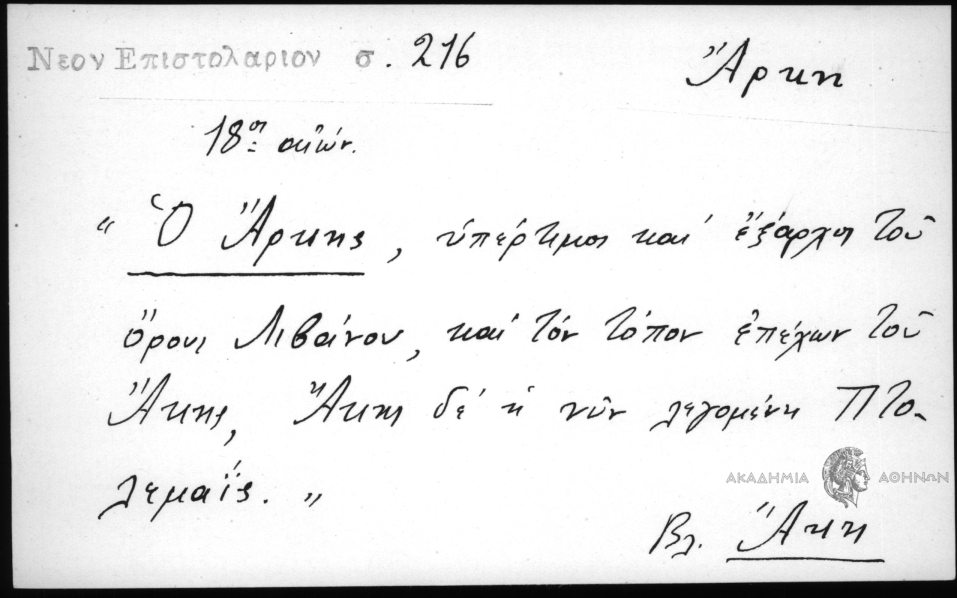 Νεον Επιστολαριον σ. 216
Ἄρκη
18ος αἰών.
“ Ὁ Ἄρκης, ὑπέρτιμος καὶ ἔξαρχος τοῦ
ὄρους Λιβάνου, καὶ τόν τόπον ἐπέχων τοῦ
Ἄκης, Ἄκη δέ ἡ νῦν λεγομένη Πτο-
λεμαΐς. „
ΑΚΑΔΗΜΙΑ ΑΘΗΝΩΝ
Βλ. Ἄκη